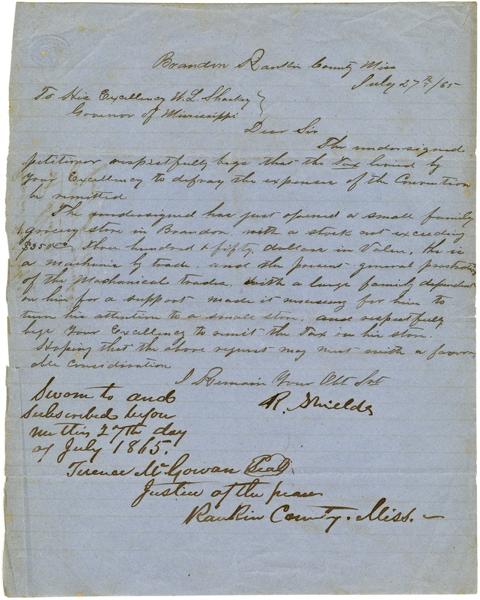 Brandon Rankin County Miss
July 27th/65
To His Excellency W. L. Sharkey
Govenor of Mississippi
Dear Sir
The undersigned
petitioner respectfully begs that the Tax levied by
your Excellency to defray the expenses of the Convention
be remitted
The undersigned has just opened a small family
grocery store in Brandon with a stock not exceeding
$350.00 three hundred & fifty dollars in Value, he is
a mechanic by trade and the present general prostration
of the Mechanical trades with a large family dependent
on him for a support made it necessary for him to
turn his attention to a small store and respectfully
begs Your Excellency to remit the Tax in his store.
Hoping that the above request may meet with a favor
able consideration
I Remain Your Obt Svt
R. Shields
Sworn to and
Subscribed before
me this 27th day
of July 1865.
Terence McGowan Seal
Justice of the peace
Rankin County. Miss.